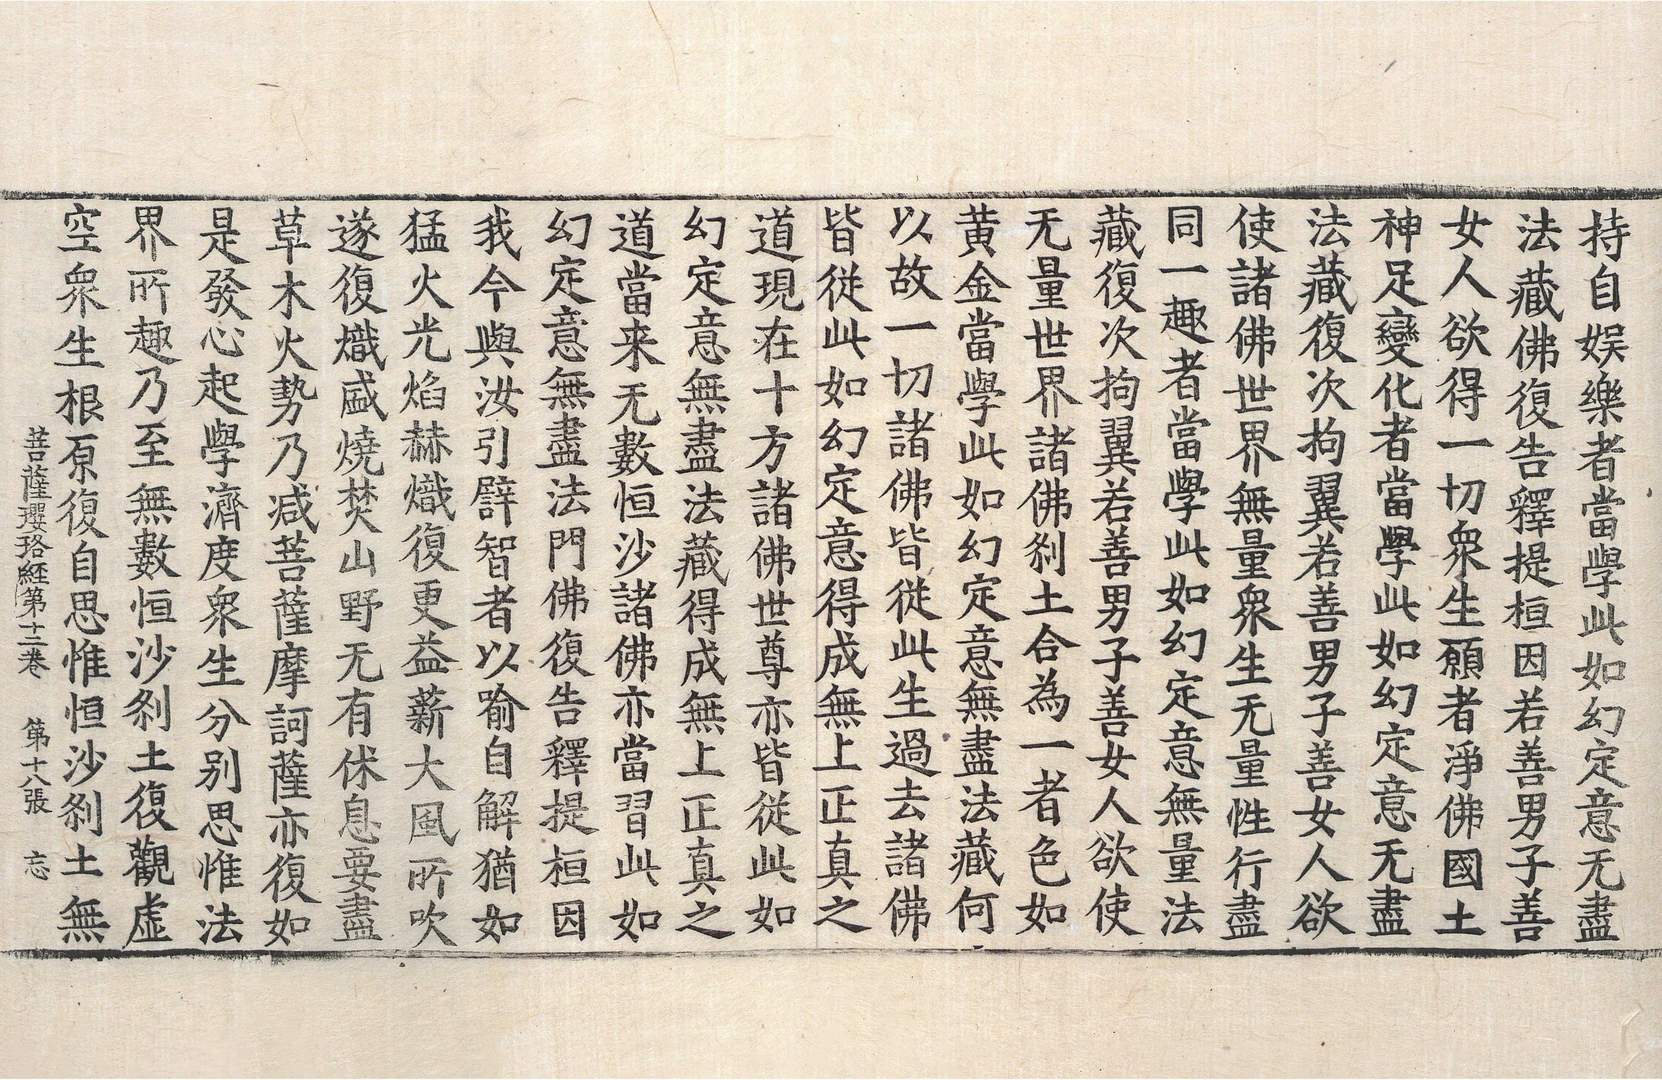 持自娛樂者當學此如幻定意无盡
法藏佛復告釋提桓因若善男子善
女人欲得一切衆生願者淨佛國土
神足變化者當學此如幻定意无盡
法藏復次拘翼若善男子善女人欲
使諸佛世界無量衆生无量性行盡
同一趣者當學此如幻定意無量法
藏復次拘翼若善男子善女人欲使
无量世界諸佛刹土合為一者色如
黄金當學此如幻定意無盡法藏何
以故一切諸佛皆從此生過去諸佛
皆從此如幻定意得成無上正真之
道現在十方諸佛世尊亦皆從此如
幻定意無盡法藏得成無上正真之
道當来无數恒沙諸佛亦當習此如
幻定意無盡法門佛復告釋提桓因
我今與汝引譬智者以喻自解猶如
猛火光焰赫熾復更益薪大風所吹
遂復熾盛燒焚山野无有休息要盡
草木火勢乃減菩薩摩訶薩亦復如
是發心起學濟度衆生分別思惟法
界所趣乃至無數恒沙刹土復觀虚
空衆生根原復自思惟恒沙刹土無
菩薩瓔珞經第十二卷 第十八張 忘